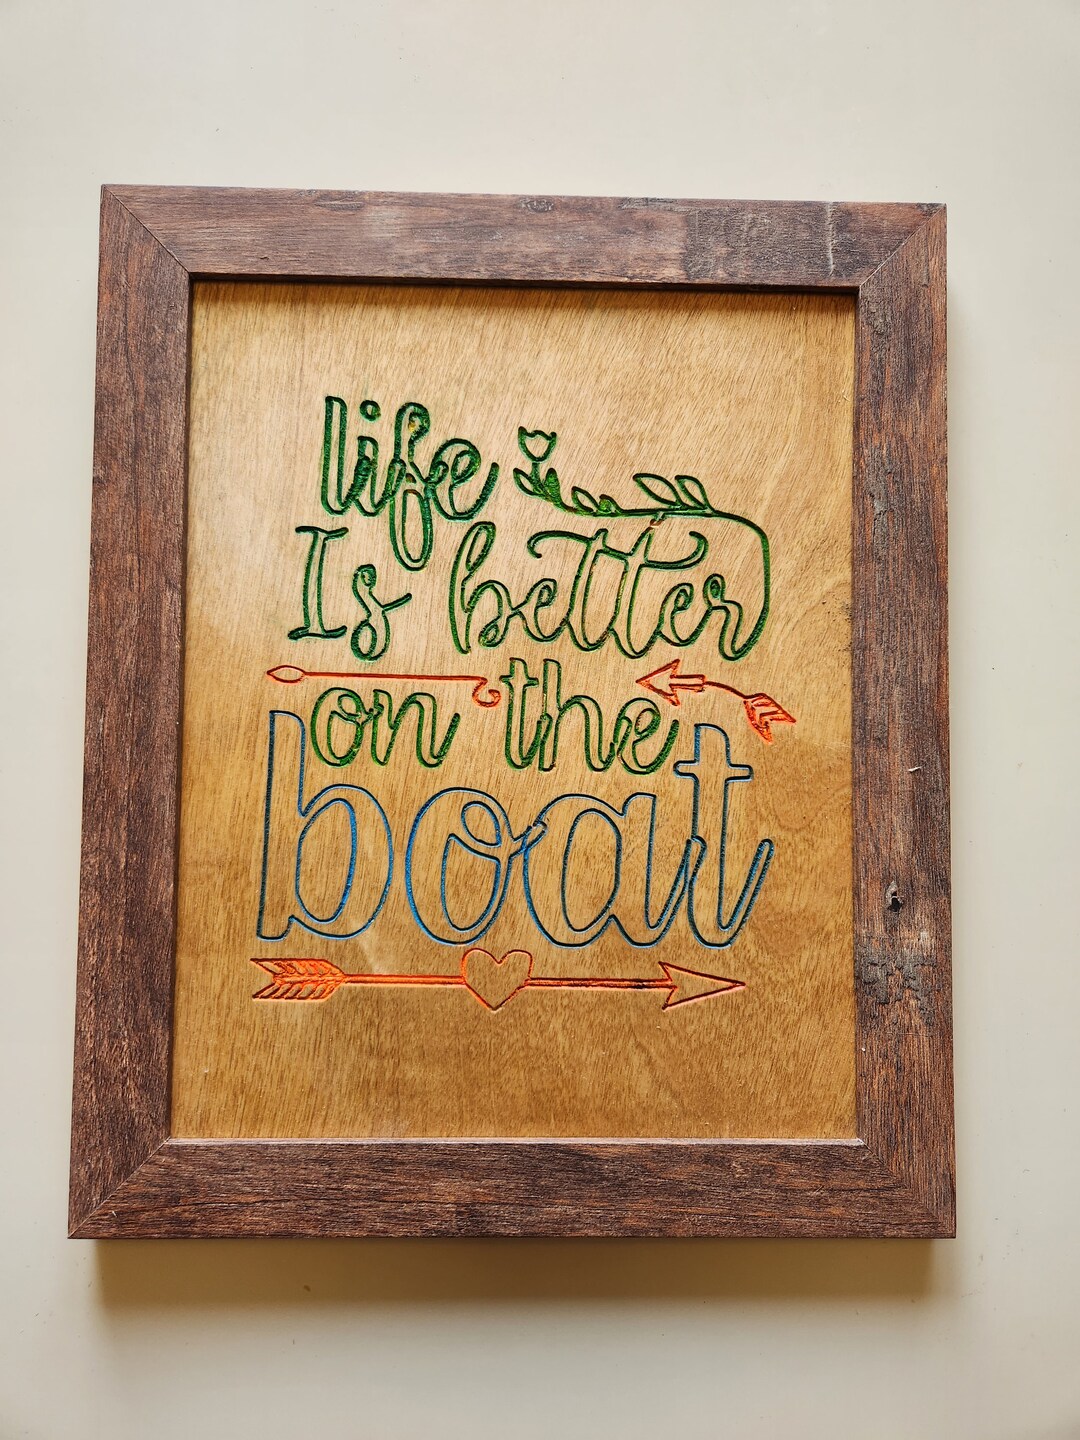 life
Is better
on the
boat